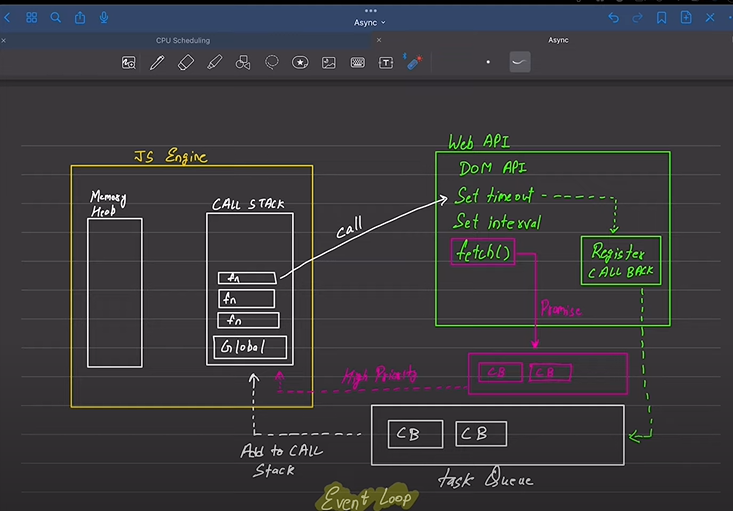 Async
CPU Scheduling
Async
JS Engine
Memory
Heap
CALL STACK
fn
fn
fn
Global
call
Web API
DOM API
Set timeout
Set interval
fetch()
Register
CALL BACK
Promise
CB
CB
High Priority
CB
CB
Add to CALL
Stack
task Queue
Event Loop